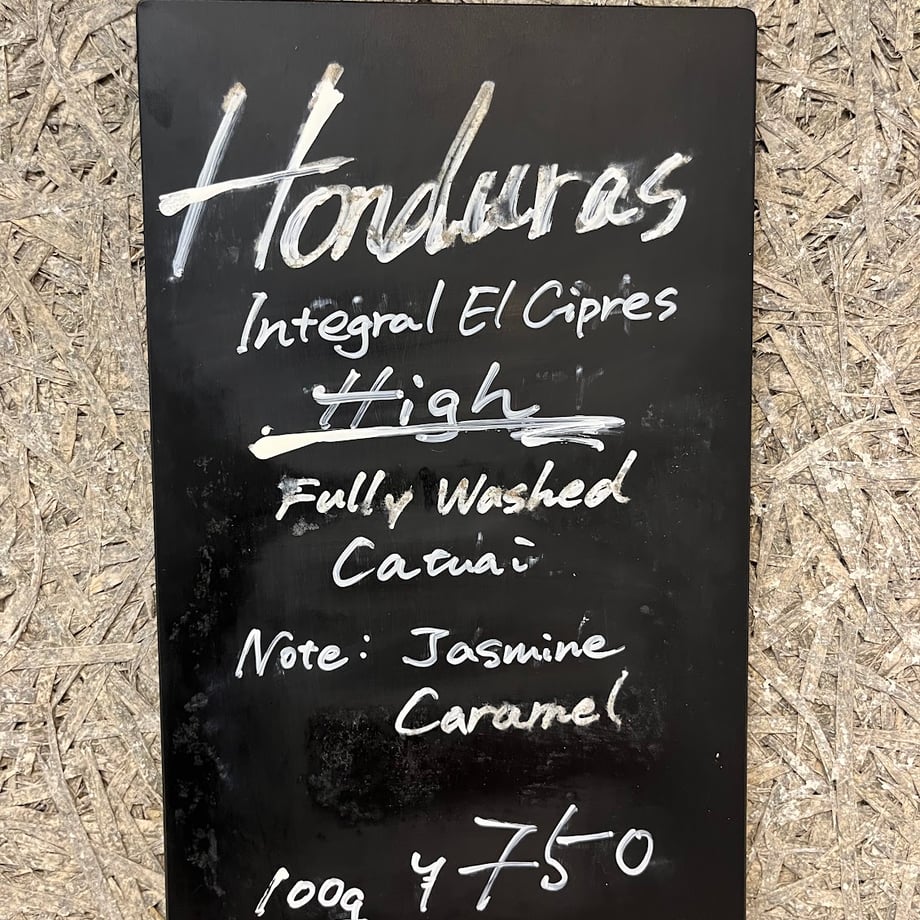 Honduras
Integral El Cipres
High
Fully Washed
Catuai
Note: Jasmine
Caramel
100g ¥750